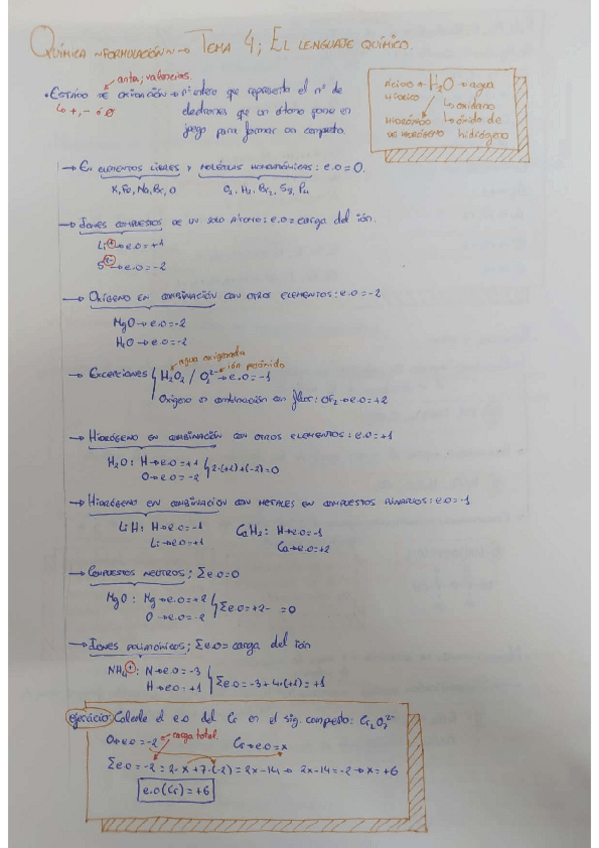 QUÍMICA ~FORMULACIÓN~ → TEMA 4; EL LENGUAJE QUÍMICO.
antes; valencias.
• ESTADO DE OXIDACIÓN → nº entero que representa el nº de
↳ +, - ó 0
electrones que un átomo pone en
juego para formar un compuesto.
H₂O → agua
↳ oxidano
HIDRÓXIDO ↳ óxido de
DE HIDRÓGENO hidrógeno
→ EN ELEMENTOS LIBRES Y MOLÉCULAS MONOATÓMICAS: e.o = 0.
K, Fe, Na, Br, O O₂, H₂, Br₂, S₈, P₄
→ IONES COMPUESTOS DE UN SOLO ÁTOMO: e.o = carga del ión.
Li⁺ → e.o = +1
S²⁻ → e.o = -2
→ OXÍGENO EN COMBINACIÓN CON OTROS ELEMENTOS: e.o = -2
MgO → e.o = -2
H₂O → e.o = -2
agua oxigenada
ión peróxido
→ EXCEPCIONES { H₂O₂ / O₂²⁻ → e.o = -1
Oxígeno en combinación con flúor: OF₂ → e.o = +2
→ HIDRÓGENO EN COMBINACIÓN CON OTROS ELEMENTOS: e.o = +1
H₂O: H → e.o = +1 } 2·(+1)+(-2) = 0
O → e.o = -2
→ HIDRÓGENO EN COMBINACIÓN CON METALES EN COMPUESTOS BINARIOS: e.o = -1
LiH: H → e.o = -1 CaH₂: H → e.o = -1
Li → e.o = +1 Ca → e.o = +2
→ COMPUESTOS NEUTROS; Σe.o = 0
MgO: Mg → e.o = +2 } Σe.o = +2- = 0
O → e.o = -2
→ IONES POLIATÓMICOS; Σe.o = carga del ión
NH₄⁺: N → e.o = -3 } Σe.o = -3 + 4·(+1) = +1
H → e.o = +1
ejercicio Calcule el e.o del Cr en el sig. compuesto: Cr₂O₇²⁻
O → e.o = -2 carga total. Cr → e.o = x
Σe.o = -2 = 2·x + 7·(-2) = 2x - 14 → 2x - 14 = -2 → x = +6
e.o (Cr) = +6